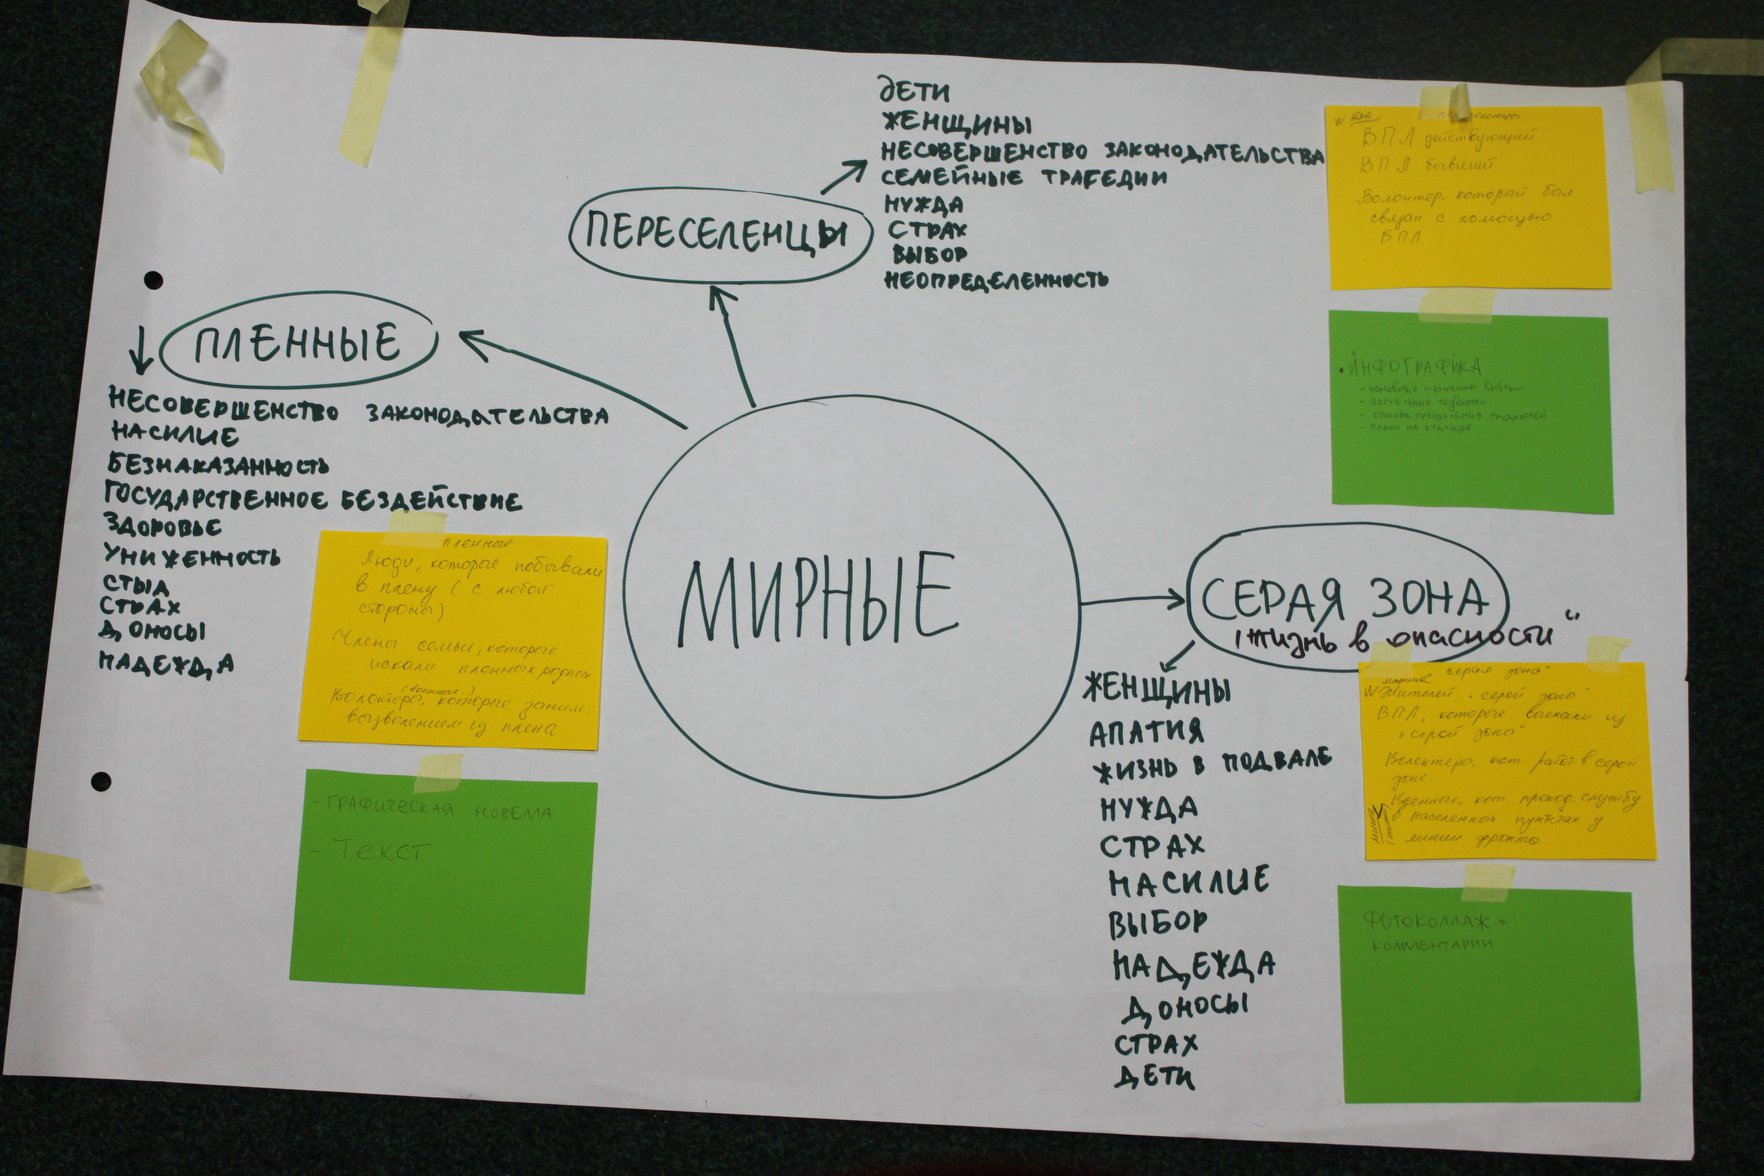 ДЕТИ
ЖЕНЩИНЫ
НЕСОВЕРШЕНСТВО ЗАКОНОДАТЕЛЬСТВА
СЕМЕЙНЫЕ ТРАГЕДИИ
НУЖДА
СТРАХ
ВЫБОР
НЕОПРЕДЕЛЕННОСТЬ
ПЕРЕСЕЛЕНЦЫ
ВПЛ действующий
ВПЛ бывший
Волонтер, который был
связан с помощью
ВПЛ
ИНФОГРАФИКА
- основные причины
- актуальные трудности
- способы преодоления трудностей
- планы на будущее
ПЛЕННЫЕ
НЕСОВЕРШЕНСТВО ЗАКОНОДАТЕЛЬСТВА
НАСИЛИЕ
БЕЗНАКАЗАННОСТЬ
ГОСУДАРСТВЕННОЕ БЕЗДЕЙСТВИЕ
ЗДОРОВЬЕ
УНИЖЕННОСТЬ
СТЫД
СТРАХ
ДОНОСЫ
НАДЕЖДА
пленные
Люди, которые побывали
в плену (с любой
стороны)
Члены семьи, которые
искали пленных родных
(военные)
Волонтеры, которые заним
вызволением из плена
- ГРАФИЧЕСКАЯ НОВЕЛЛА
- ТЕКСТ
МИРНЫЕ
СЕРАЯ ЗОНА
"жизнь в опасности"
ЖЕНЩИНЫ
АПАТИЯ
ЖИЗНЬ В ПОДВАЛЕ
НУЖДА
СТРАХ
НАСИЛИЕ
ВЫБОР
НАДЕЖДА
ДОНОСЫ
СТРАХ
ДЕТИ
серая зона"
Жителей "серой зоны"
ВПЛ, которые выехали из
"серой зоны"
Волонтеры, кот работ в серой
зоне.
Военные, кот. проход. службу
в населенных пунктах у
линии фронта
ФОТОКОЛЛАЖ +
КОММЕНТАРИИ